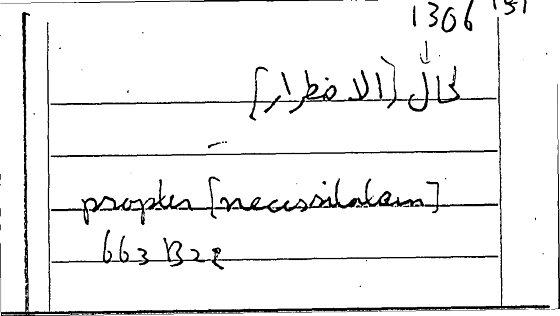 1306
↓
لحال [الاضطرار]
propter [necessitatem]
663 B22